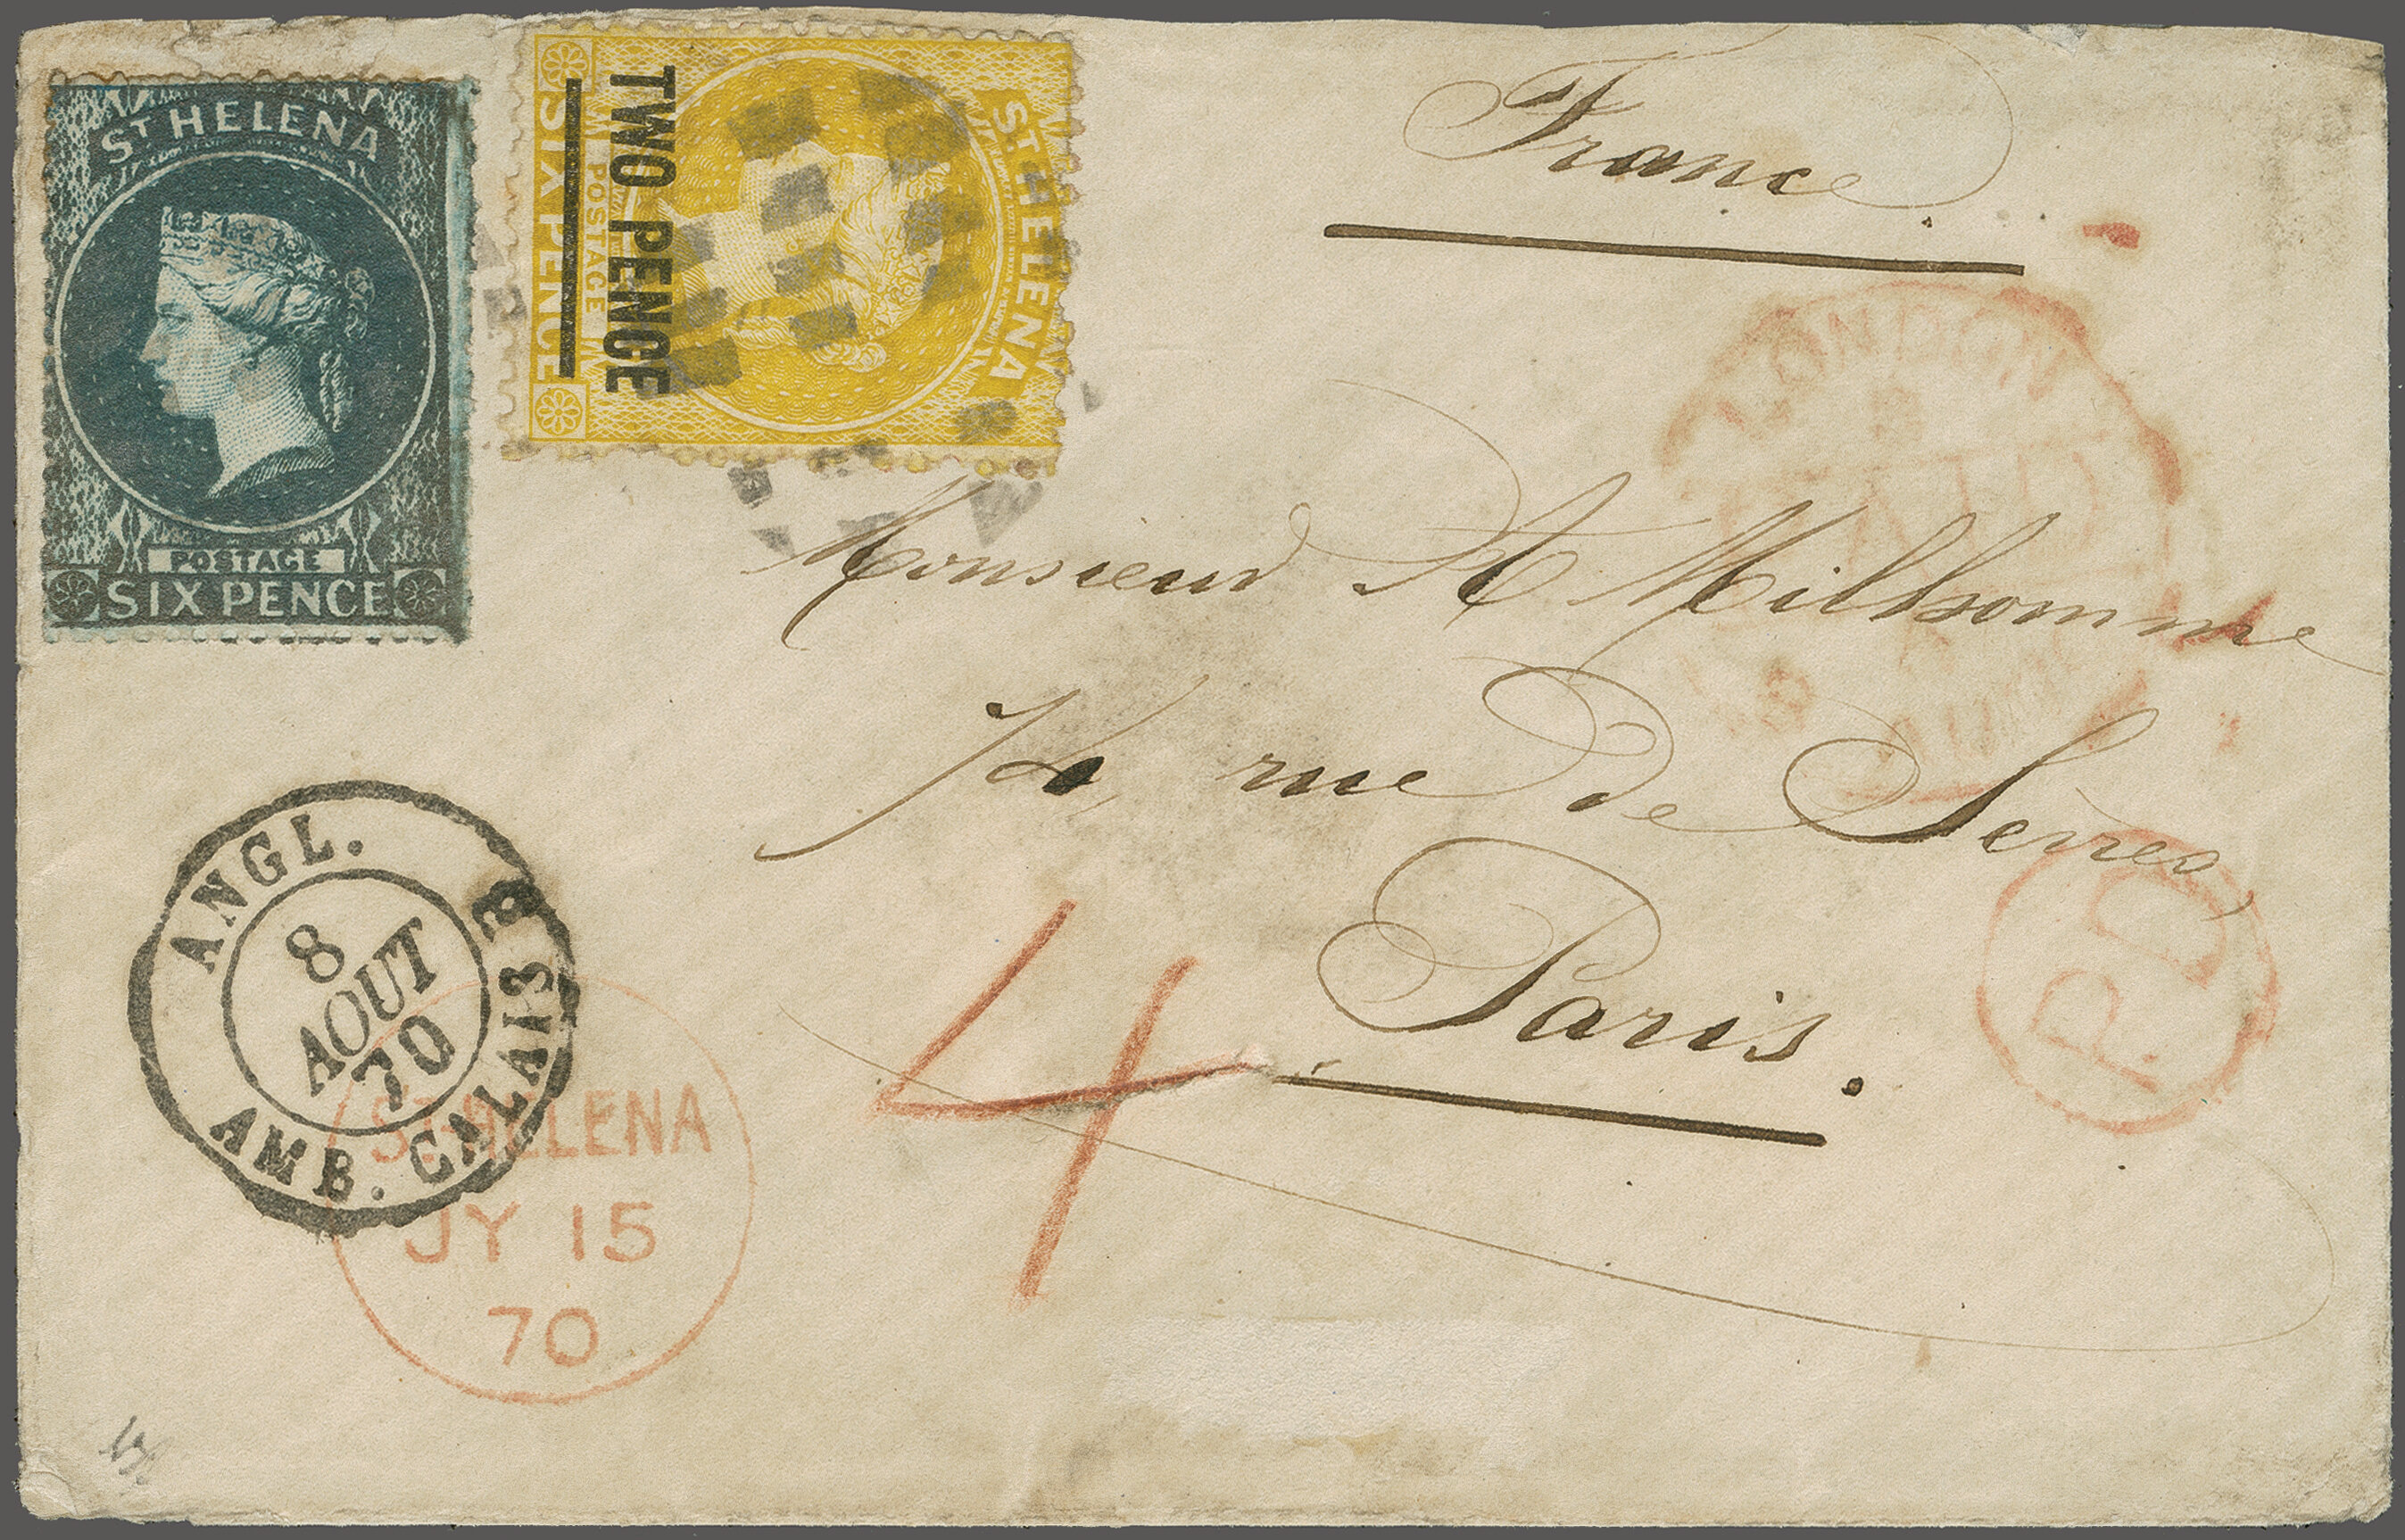 ST HELENA
POSTAGE
SIX PENCE
ST. HELENA
POSTAGE
SIX PENCE
TWO PENCE
France
LONDON
Monsieur A Milhomme
rue de Sèvres,
Paris.
4
PD
ANGL.
8
AOUT
70
AMB. CALAIS B
ST HELENA
JY 15
70